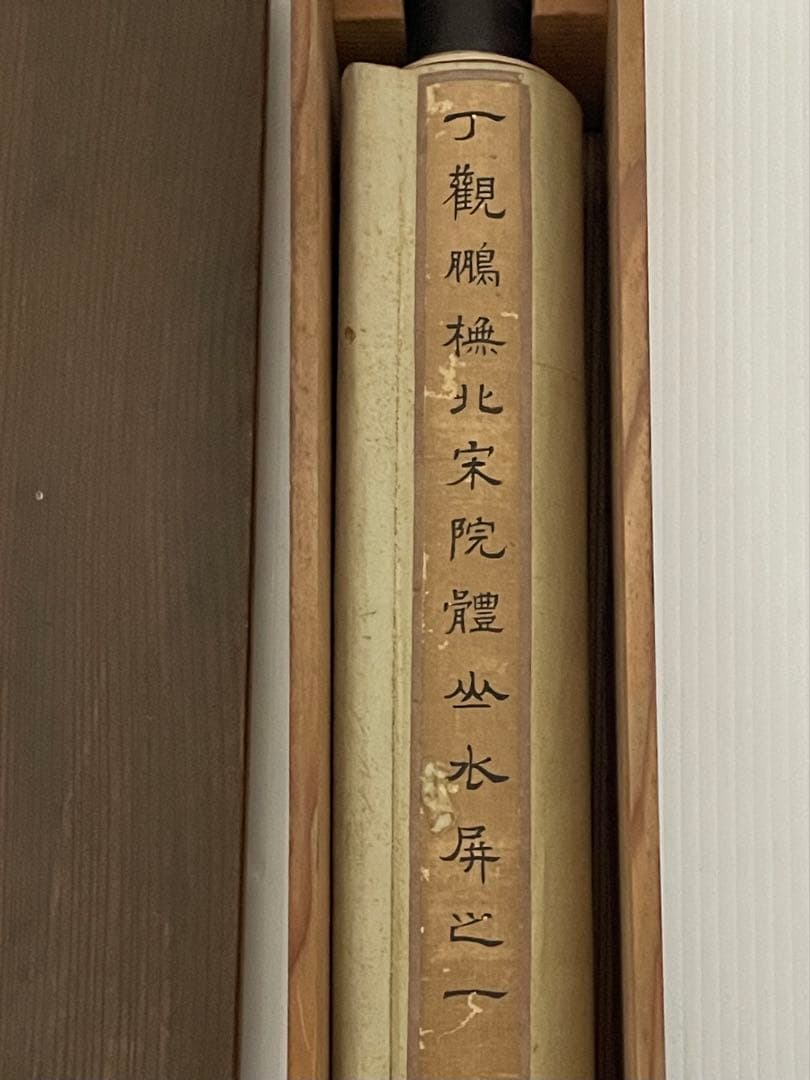 丁觀鵬橅北宋院體山水屏之一